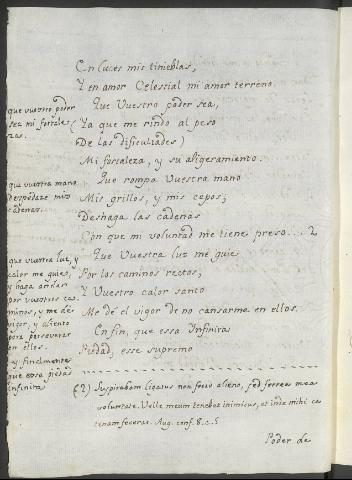 En luces mis tinieblas,
Y en amor Celestial mi amor terreno.
Que Vuestro poder sea,
(Ya que me rindo al peso
De las dificultades)
Mi fortaleza, y su aligeramento.
Que rompa Vuestra mano
Mis grillos, y mis cepos;
Deshaga las cadenas
Con que mi voluntad me tiene preso... 2
Que Vuestra luz me guie
Por los caminos rectos,
Y Vuestro calor santo
Me dé el vigor de no cansarme en ellos.
En fin, que essa Infinita
Piedad, esse supremo
que vuestro poder
sea mi fortale-
zas.
que vuestra mano
despedaze mis
cadenas.
que vuestra luz, y
calor me guien,
y haga
por vuestros ca-
minos, y me dé
vigor, y aliento
para perseverar
en ellos.
y finalmente
que essa piedad
infinita
(2) Suspirabam ligatus non ferro alieno, sed ferrea mea
voluntate. Velle meum tenebat inimicus, et inde mihi ca
tenam fecerat. Aug. conf. 8. c. 5
Poder de